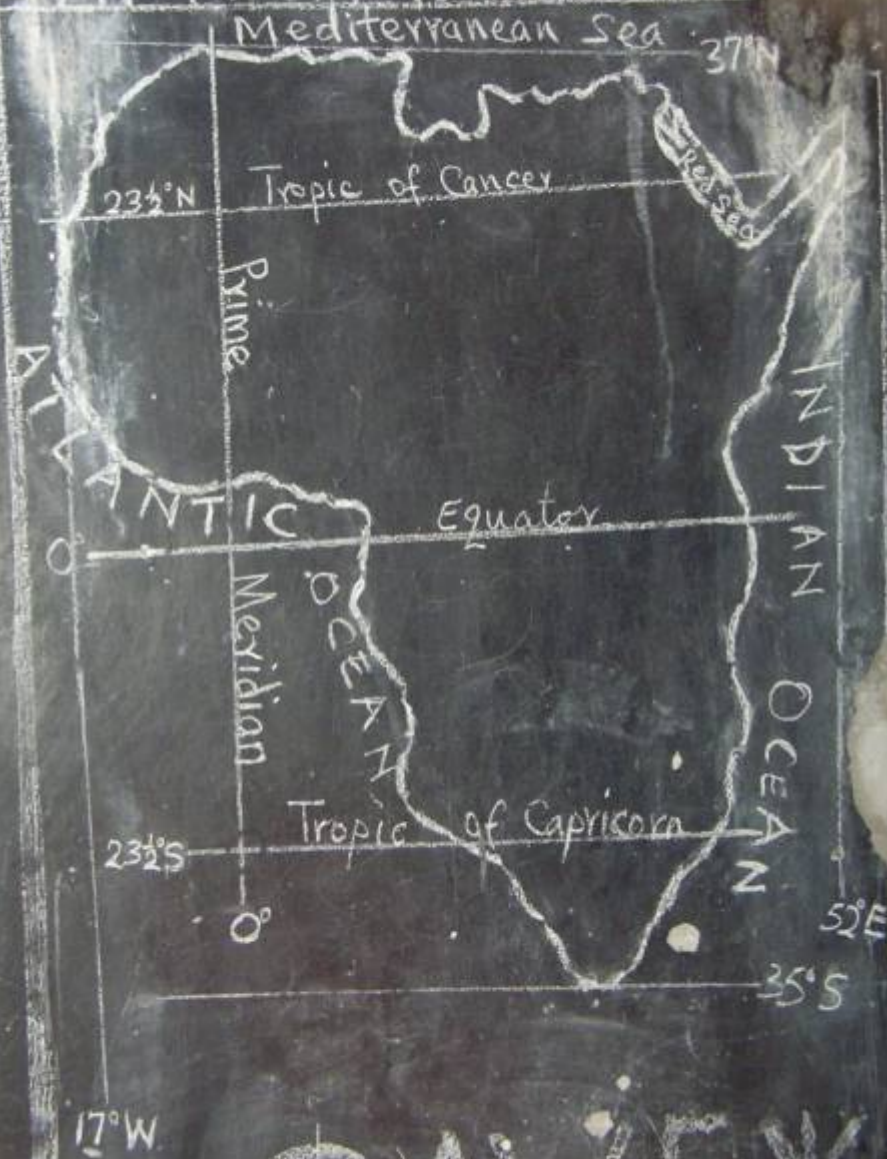 Mediterranean Sea
37°N
Red Sea
23½°N
Tropic of Cancer
Prime
Meridian
ATLANTIC
OCEAN
INDIAN
OCEAN
Equator
0°
Tropic of Capricorn
23½°S
0°
52°E
35°S
17°W